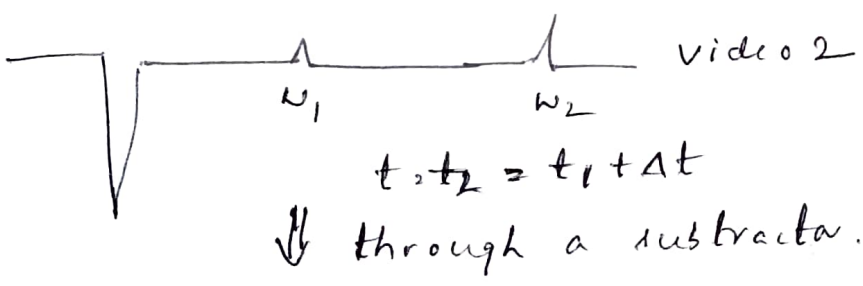 video 2
N1 W2
t, t2 = t1 + Δt
⇓ through a subtractor.